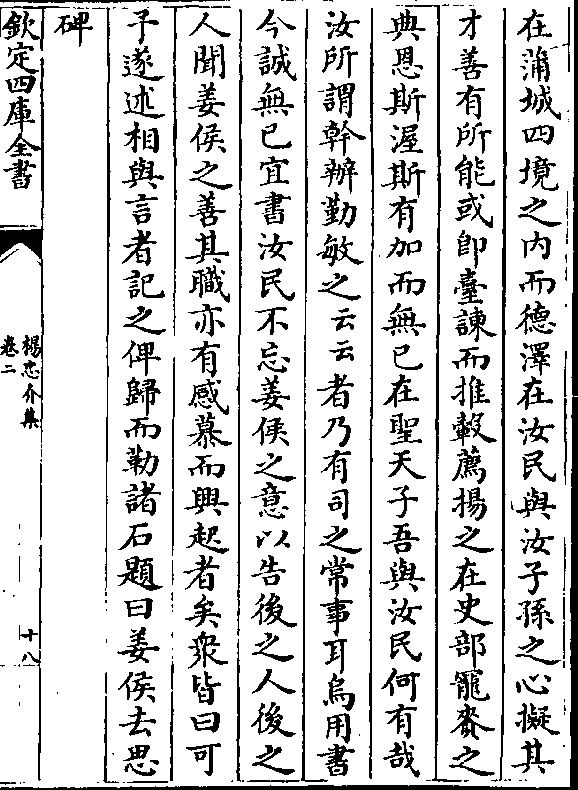 在蒲城四境之內而德澤在汝民與汝子孫之心擬其
才善有所能或卽臺諫而推轂薦揚之在史部寵賚之
典恩斯渥斯有加而無已在聖天子吾與汝民何有哉
汝所謂幹辦勤敏之云云者乃有司之常事耳烏用書
今誠無已宜書汝民不忘姜侯之意以告後之人後之
人聞姜侯之善其職亦有感慕而興起者矣衆皆曰可
予遂述相與言者記之俾歸而勒諸石題曰姜侯去思
碑
欽定四庫全書
楊忠介集
卷二
十八